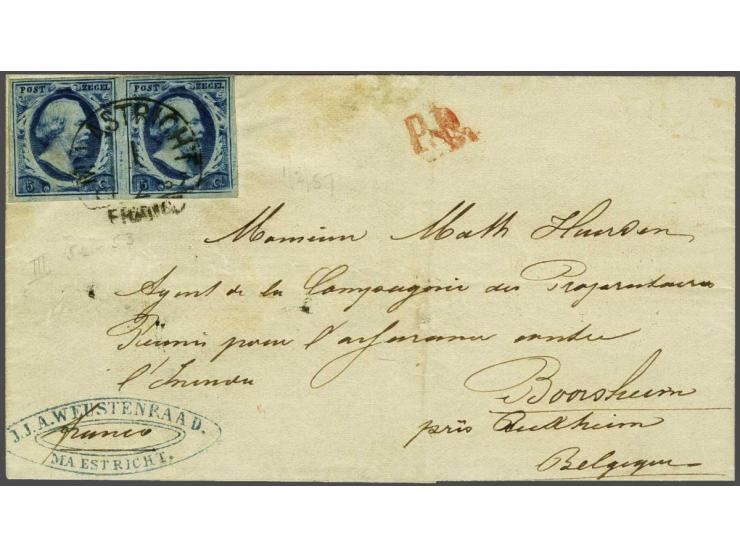 POST ZEGEL POST ZEGEL
5 C. 5 C.
MAASTRICHT
1
2
FRANCO
P.D.
1/2/57
III
Monsieur Math
Agent de la Compagnie des
Réunis pour l'assurance contre
l'incendie
Boorsheim
près
Belgique
J.J.A. WEUSTENRAAD.
franco
MAESTRICHT.